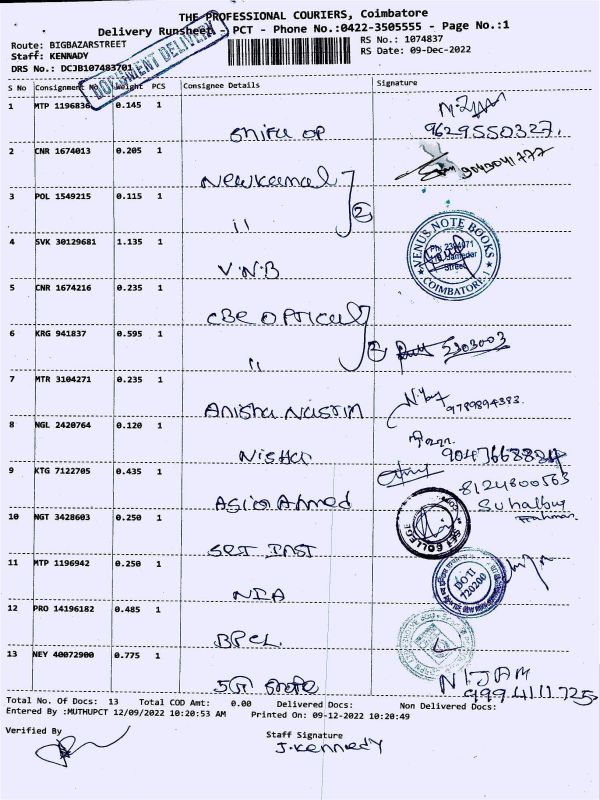 THE PROFESSIONAL COURIERS, Coimbatore
Delivery Runsheet - PCT - Phone No.:0422-3505555 - Page No.:1
Route: BIGBAZARSTREET
RS No.: 1074837
Staff: KENNADY
RS Date: 09-Dec-2022
DRS No.: DCJB107483701
DOCUMENT DELIVERY
S No Consignment No Weight PCS Consignee Details Signature
1 MTP 1196836 0.145 1
9629550327.
2 CNR 1674013 0.205 1
Newkamal
9043041777
3 POL 1549215 0.115 1
11
2
VENUS NOTE BOOKS
Street
COIMBATORE-1
4 SVK 30129681 1.135 1
V.N.B
5 CNR 1674216 0.235 1
CBE OPTICALS
6 KRG 941837 0.595 1
11
2
2303003
7 MTR 3104271 0.235 1
Anisha Nasrin
9789894383.
8 NGL 2420764 0.120 1
Nisha
9 KTG 7122705 0.435 1
Asim Ahmed
8124800563
10 NGT 3428603 0.250 1
COLLEGE
11 MTP 1196942 0.250 1
NIA
DO-II
720200
12 PRO 14196182 0.485 1
BPCL
13 NEY 40072900 0.775 1
NIJAM
9994111725
Total No. Of Docs: 13 Total COD Amt: 0.00 Delivered Docs: Non Delivered Docs:
Entered By :MUTHUPCT 12/09/2022 10:20:53 AM Printed On: 09-12-2022 10:20:49
Verified By
Staff Signature
J. Kennedy